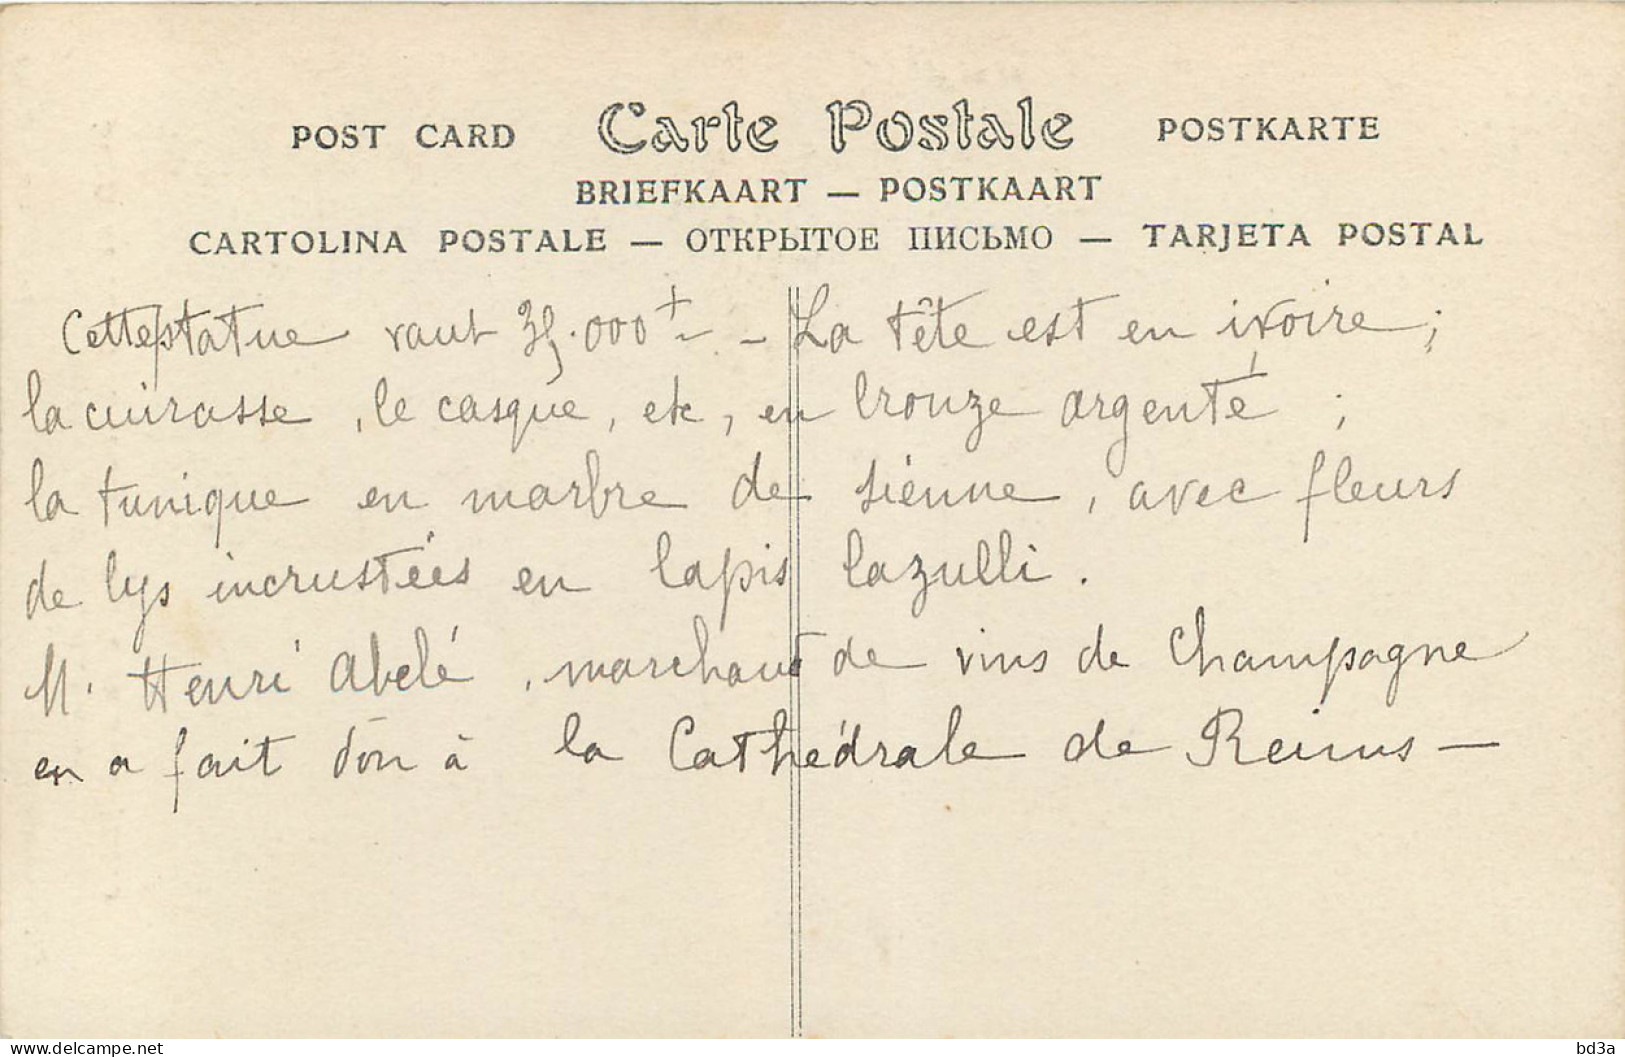 POST CARD Carte Postale POSTKARTE
BRIEFKAART — POSTKAART
CARTOLINA POSTALE — ОТКРЫТОЕ ПИСЬМО — TARJETA POSTAL
Cette statue vaut 35.000 - La tête est en ivoire ;
la cuirasse, le casque, etc, en bronze argenté ;
la tunique en marbre de sienne, avec fleurs
de lys incrustées en lapis lazulli.
M. Henri Abelé, marchand de vins de Champagne
en a fait don à la Cathédrale de Reims —
delcampe.net
bd3a